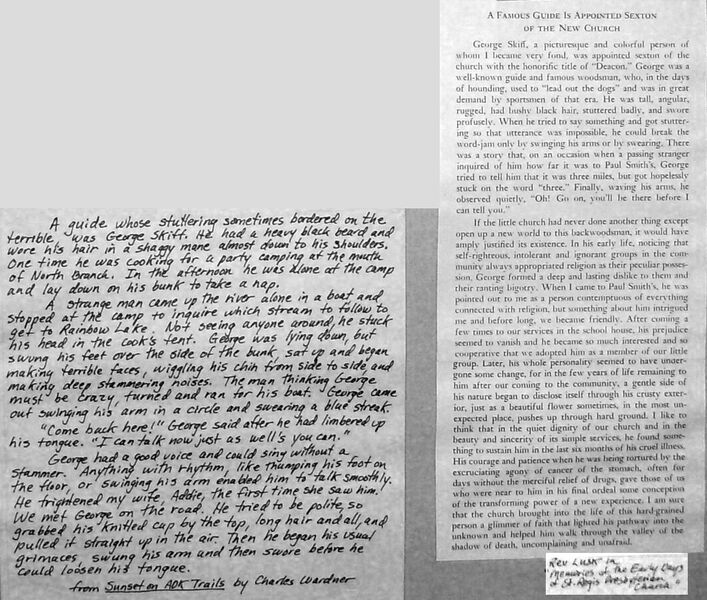 A guide whose stuttering sometimes bordered on the
terrible was George Skiff. He had a heavy black beard and
wore his hair in a shaggy mane almost down to his shoulders.
One time he was cooking for a party camping at the mouth
of North Branch. In the afternoon he was alone at the camp
and lay down on his bunk to take a nap.
A strange man came up the river alone in a boat and
stopped at the camp to inquire which stream to follow to
get to Rainbow Lake. Not seeing anyone around, he stuck
his head in the cook's tent. George was lying down, but
swung his feet over the side of the bunk, sat up and began
making terrible faces, wiggling his chin from side to side and
making deep stammering noises. The man thinking George
must be crazy, turned and ran for his boat. George came
out swinging his arm in a circle and swearing a blue streak.
"Come back here!" George said after he had limbered up
his tongue. "I can talk now just as well's you can."
George had a good voice and could sing without a
stammer. Anything with rhythm, like thumping his foot on
the floor, or swinging his arm enabled him to talk smoothly.
He frightened my wife, Addie, the first time she saw him.
We met George on the road. He tried to be polite, so
grabbed his knitted cap by the top, long hair and all, and
pulled it straight up in the air. Then he began his usual
grimaces, swung his arm and then swore before he
could loosen his tongue.
from Sunset on ADK Trails by Charles Wardner
A Famous Guide Is Appointed Sexton
of the New Church
George Skiff, a picturesque and colorful person of
whom I became very fond, was appointed sexton of the
church with the honorific title of "Deacon." George was a
well-known guide and famous woodsman, who, in the days
of hounding, used to "lead out the dogs" and was in great
demand by sportsmen of that era. He was tall, angular,
rugged, had bushy black hair, stuttered badly, and swore
profusely. When he tried to say something and got stutter-
ing so that utterance was impossible, he could break the
word-jam only by swinging his arms or by swearing. There
was a story that, on an occasion when a passing stranger
inquired of him how far it was to Paul Smith's, George
tried to tell him that it was three miles, but got hopelessly
stuck on the word "three." Finally, waving his arms, he
observed quietly, "Oh! Go on, you'll be there before I
can tell you."
If the little church had never done another thing except
open up a new world to this backwoodsman, it would have
amply justified its existence. In his early life, noticing that
self-righteous, intolerant and ignorant groups in the com-
munity always appropriated religion as their peculiar posses-
sion, George formed a deep and lasting dislike to them and
their ranting bigotry. When I came to Paul Smith's, he was
pointed out to me as a person contemptuous of everything
connected with religion, but something about him intrigued
me and before long, we became friendly. After coming a
few times to our services in the school house, his prejudice
seemed to vanish and he became so much interested and so
cooperative that we adopted him as a member of our little
group. Later, his whole personality seemed to have under-
gone some change, for in the few years of life remaining to
him after our coming to the community, a gentle side of
his nature began to disclose itself through his crusty exter-
ior, just as a beautiful flower sometimes, in the most un-
expected place, pushes up through hard ground. I like to
think that in the quiet dignity of our church and in the
beauty and sincerity of its simple services, he found some-
thing to sustain him in the last six months of his cruel illness.
His courage and patience when he was being tortured by the
excruciating agony of cancer of the stomach, often for
days without the merciful relief of drugs, gave those of us
who were near to him in his final ordeal some conception
of the transforming power of a new experience. I am sure
that the church brought into the life of this hard-grained
person a glimmer of faith that lighted his pathway into the
unknown and helped him walk through the valley of the
shadow of death, uncomplaining and unafraid.
Rev Lusk in
"Memories of the Early Days
of St. Regis Presbyterian
Church"